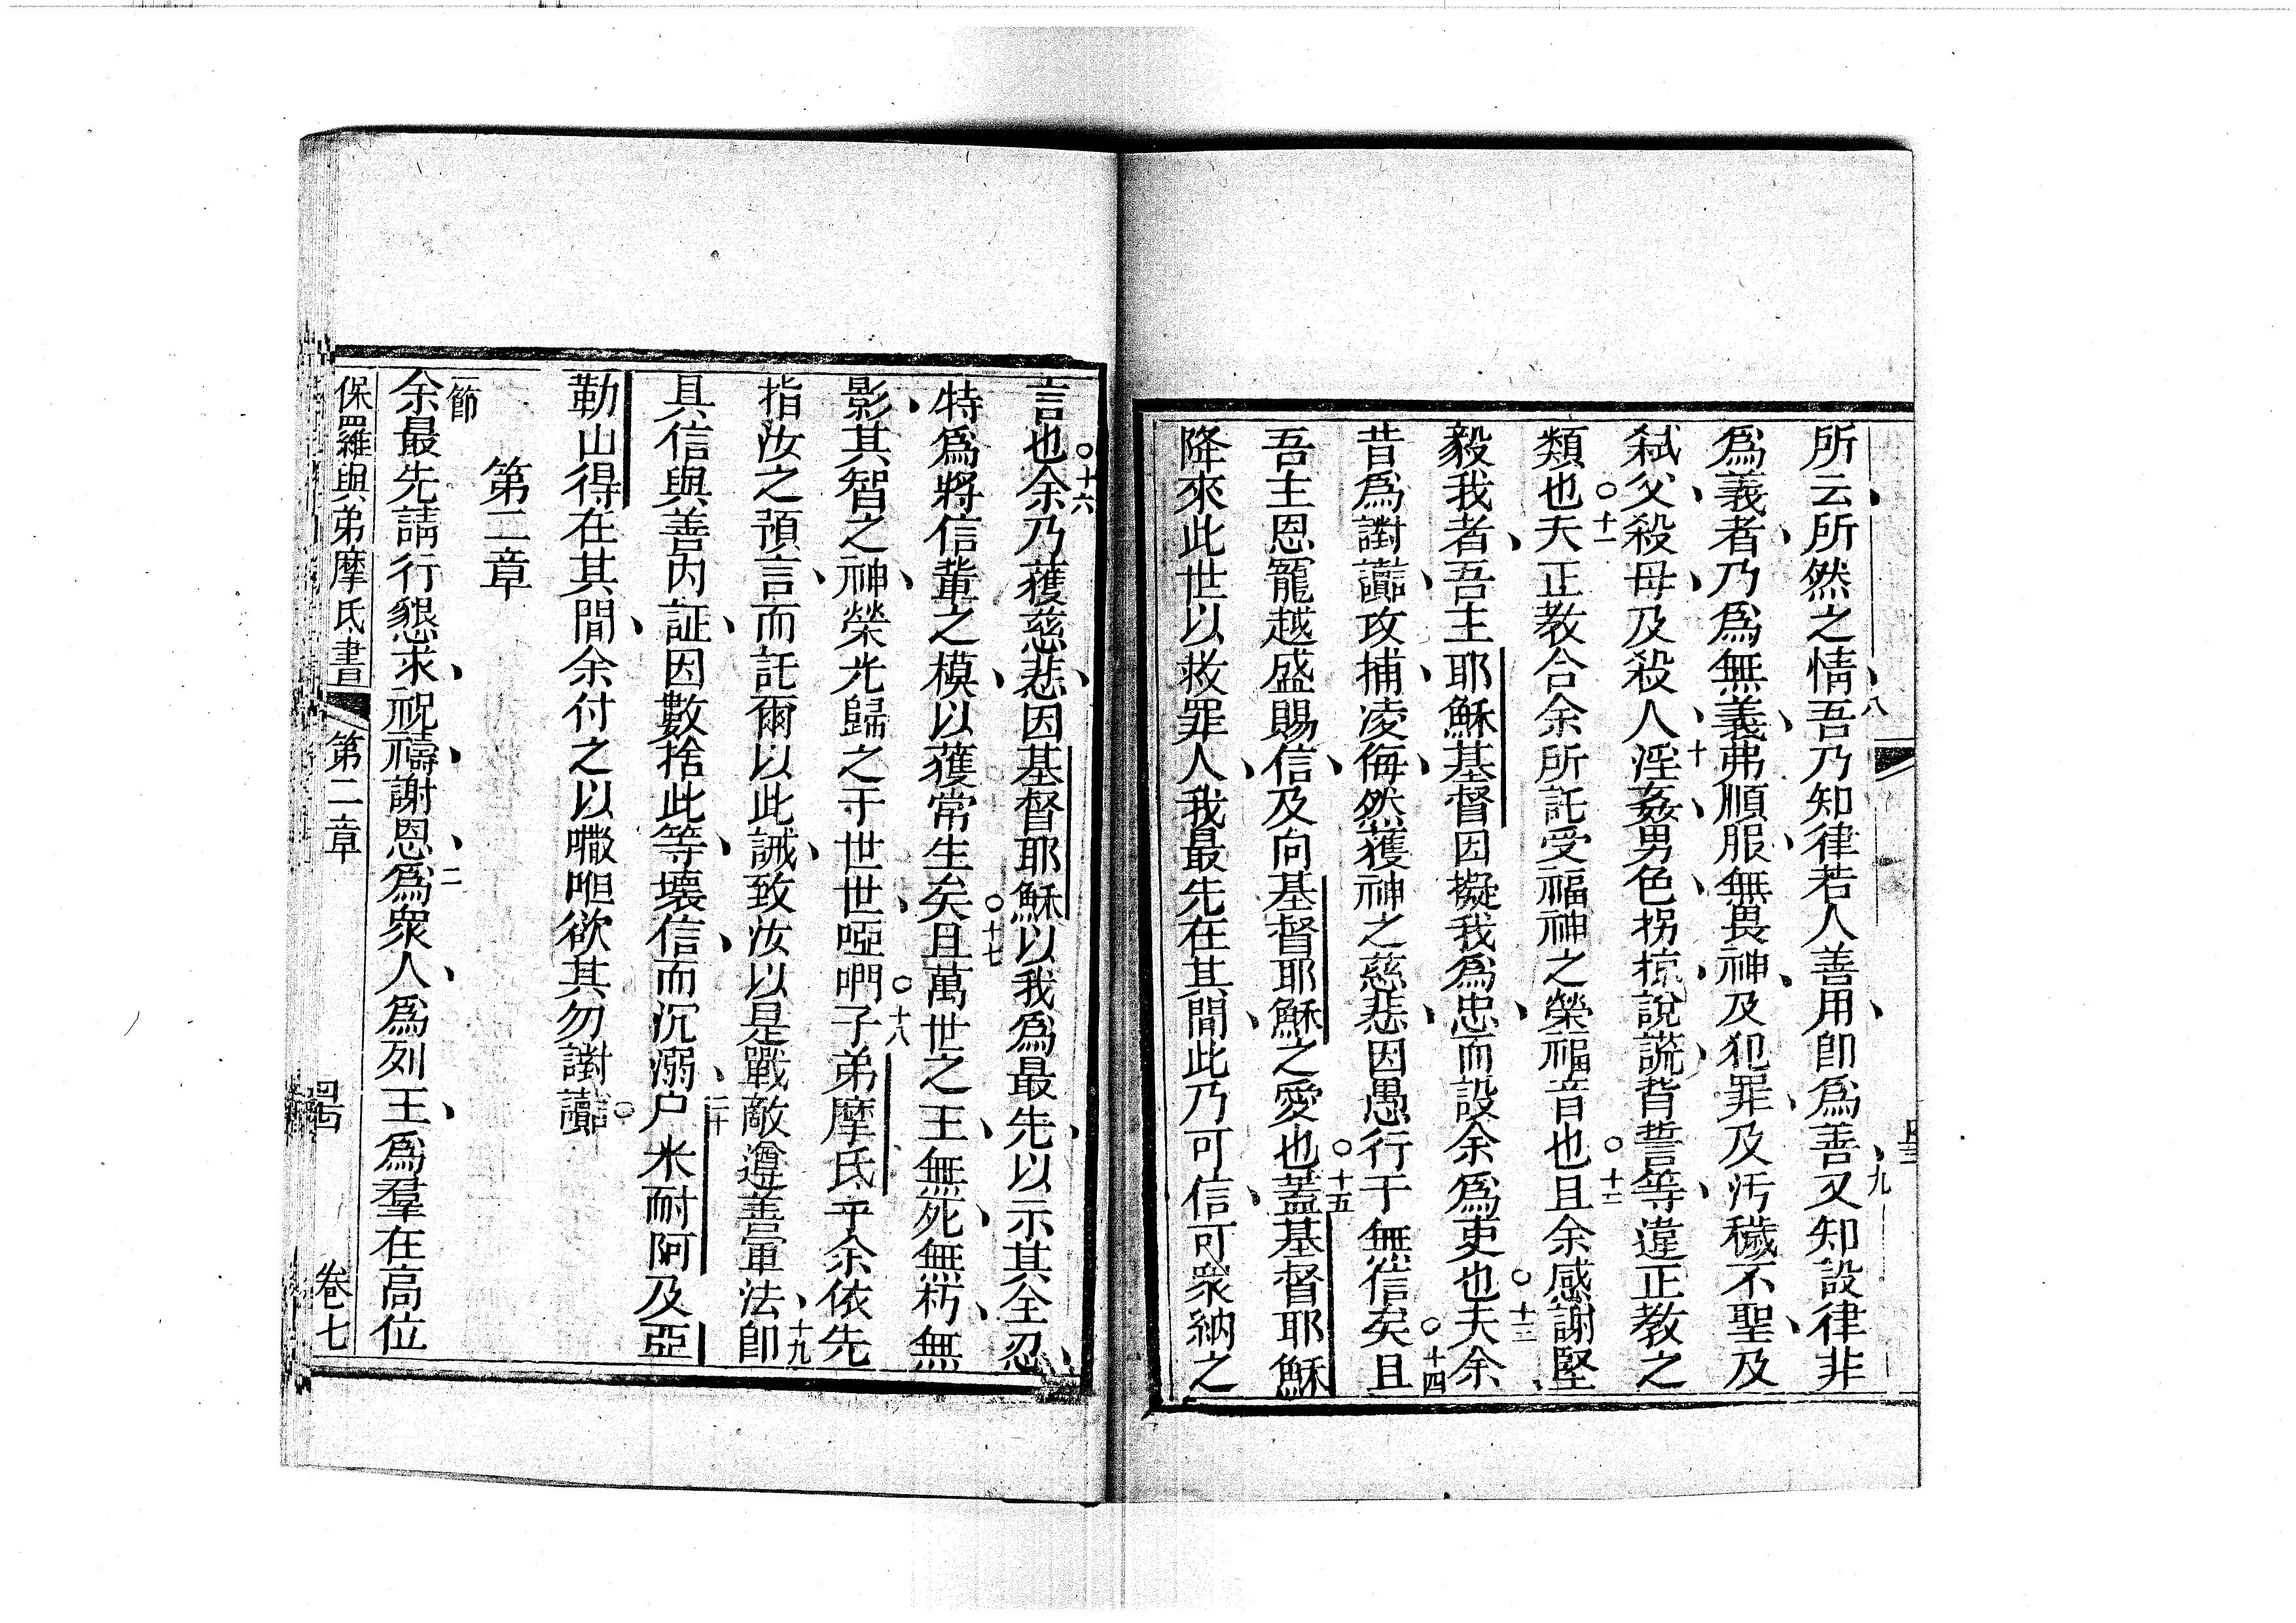 所云所然之情八吾乃知律若人善用即爲善九又知設律非
爲義者乃爲無義弗順服無畏神及犯罪及汚穢不聖及
弒父殺母及殺人十淫姦男色拐掠說謊背誓等違正教之
類也○十一天正教合余所託受福神之榮福音也○十二且余感謝堅
毅我者吾主耶穌基督因擬我爲忠而設余爲吏也○十三夫余
昔爲讟攻捕凌侮然獲神之慈悲因愚行于無信矣○十四且
吾主恩寵越盛賜信及向基督耶穌之愛也○十五蓋基督耶穌
降來此世以救罪人我最先在其間此乃可信可衆納之
言也○十六余乃獲慈悲因基督耶穌以我爲最先以示其全忍
特爲將信輩之模以獲常生矣○十七且萬世之王無死無朽無
影其智之神榮光歸之于世世啞們○十八子弟摩氐乎余依先
指汝之預言而託爾以此誡致汝以是戰敵遵善軍法十九即
具信與善内証因數捨此等壞信而沉溺二十户米耐阿及亞
勒山得在其間余付之以㘔呾欲其勿讟○
第二章
一節余最先請行懇求祝禱謝恩二爲衆人爲列王爲羣在高位
保羅與弟摩氐書 第二章 卷七